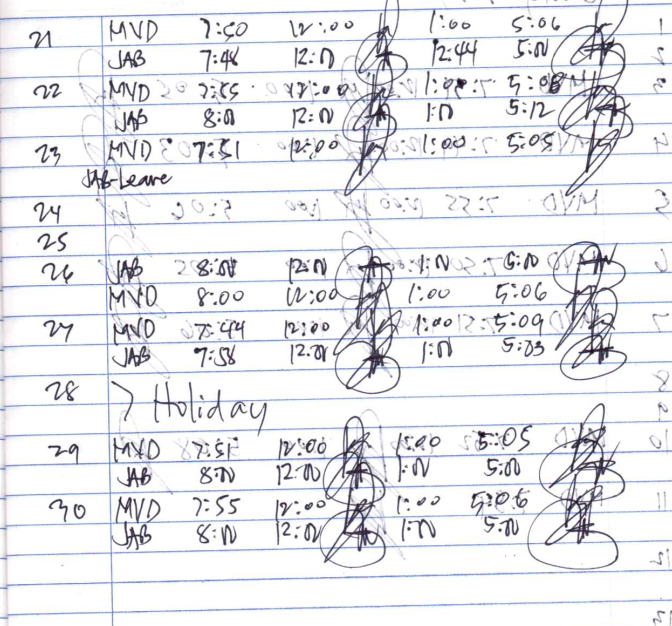 21 MVD 7:50 12:00 1:00 5:06
JAB 7:48 12:00 12:44 5:00
22 MVD 7:55 12:00 1:00 5:08
JAB 8:00 12:00 1:00 5:12
23 MVD 7:51 12:00 1:00 5:05
JAB-Leave
24
25
26 JAB 8:00 12:00 1:00 5:00
MVD 8:00 12:00 1:00 5:06
27 MVD 7:44 12:00 1:00 5:09
JAB 7:58 12:00 1:00 5:03
28 > Holiday
29 MVD 7:51 12:00 1:00 5:05
JAB 8:00 12:00 1:00 5:00
30 MVD 7:55 12:00 1:00 5:06
JAB 8:00 12:00 1:00 5:00